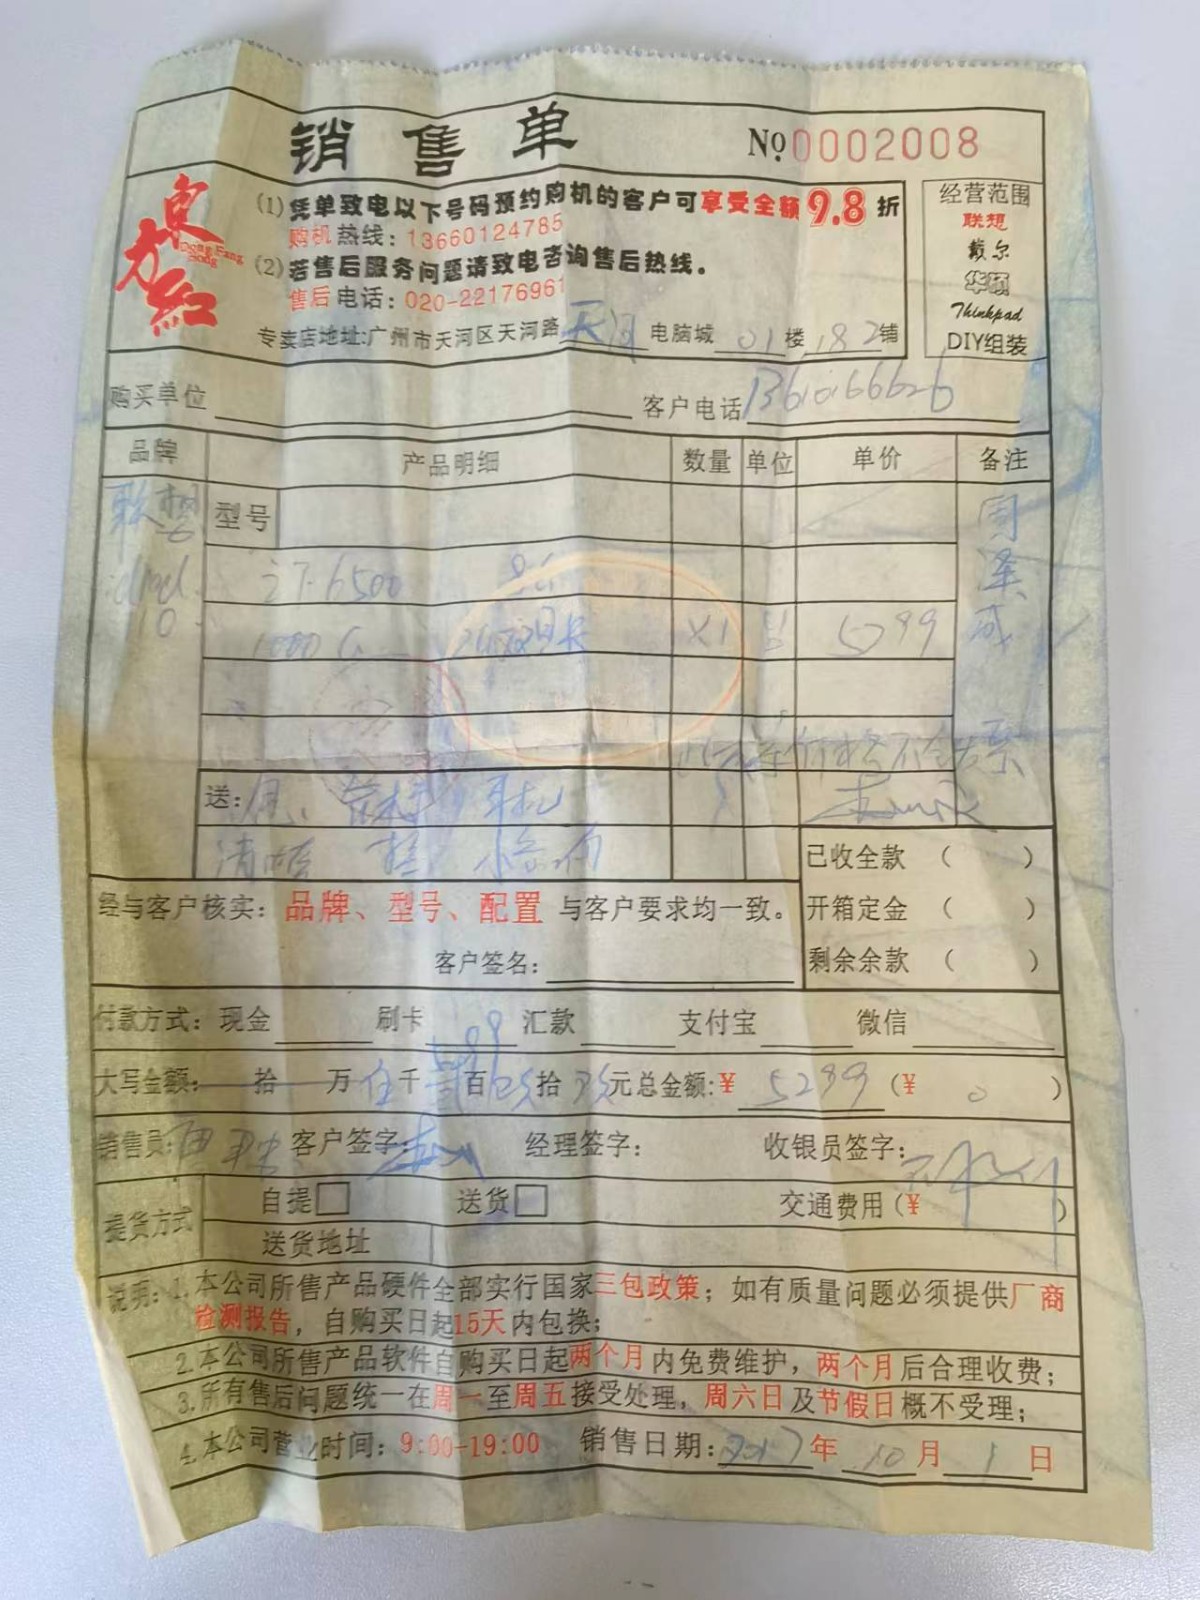 销售单 №0002008
东方红
Dong Fang Hong
(1)凭单致电以下号码预约购机的客户可享受全额9.8折
购机热线：13660124785
(2)若售后服务问题请致电咨询售后热线。
售后电话：020-22176961
专卖店地址:广州市天河区天河路天河电脑城01楼182铺
经营范围
联想
戴尔
华硕
Thinkpad
DIY组装
购买单位 客户电话
品牌 产品明细 数量 单位 单价 备注
联想 型号
i7-6500
1000G X1 台 5299
送： 耳机
已收全款 （ ）
开箱定金 （ ）
剩余余款 （ ）
经与客户核实：品牌、型号、配置 与客户要求均一致。
客户签名：
付款方式：现金 刷卡 5299 汇款 支付宝 微信
大写金额： 拾 万 伍千 贰百 玖拾 玖元 总金额:￥5299 (￥ 0 )
销售员: 客户签字: 经理签字: 收银员签字:
提货方式 自提 送货 交通费用(￥ )
送货地址
说明：1.本公司所售产品硬件全部实行国家三包政策；如有质量问题必须提供厂商
检测报告，自购买日起15天内包换；
2.本公司所售产品软件自购买日起两个月内免费维护，两个月后合理收费；
3.所有售后问题统一在周一至周五接受处理，周六日及节假日概不受理；
4.本公司营业时间：9:00-19:00 销售日期：2017年10月1日